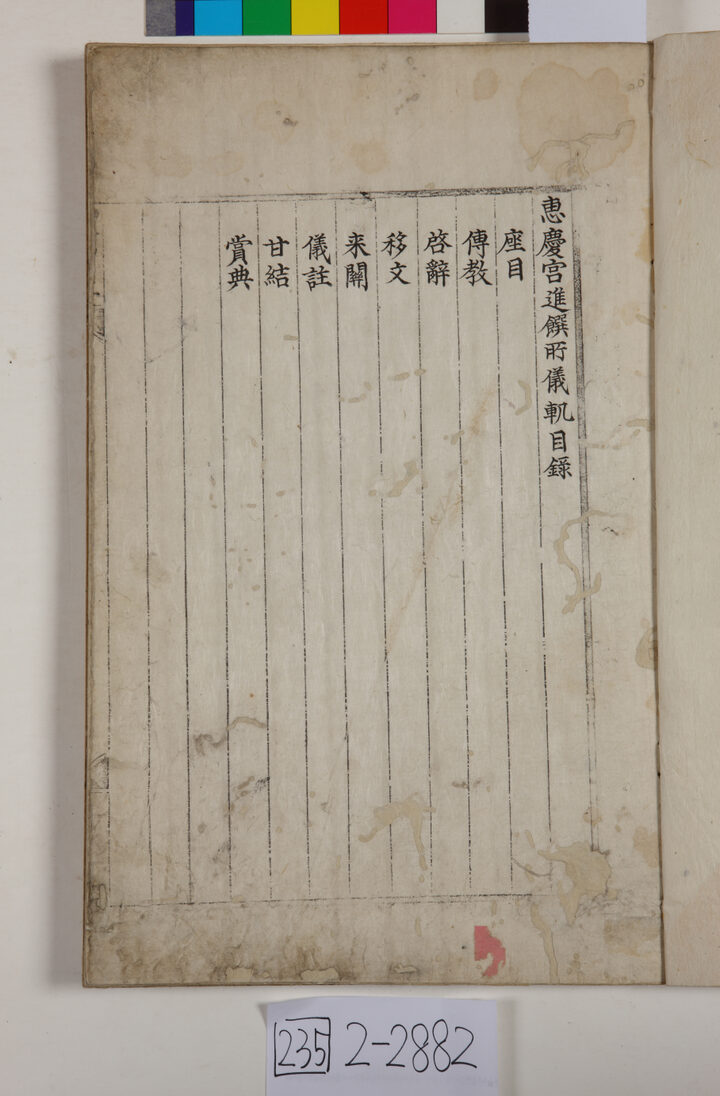 惠慶宮進饌所儀軌目錄
座目
傳教
啓辭
移文
来關
儀註
甘結
賞典
235 2-2882